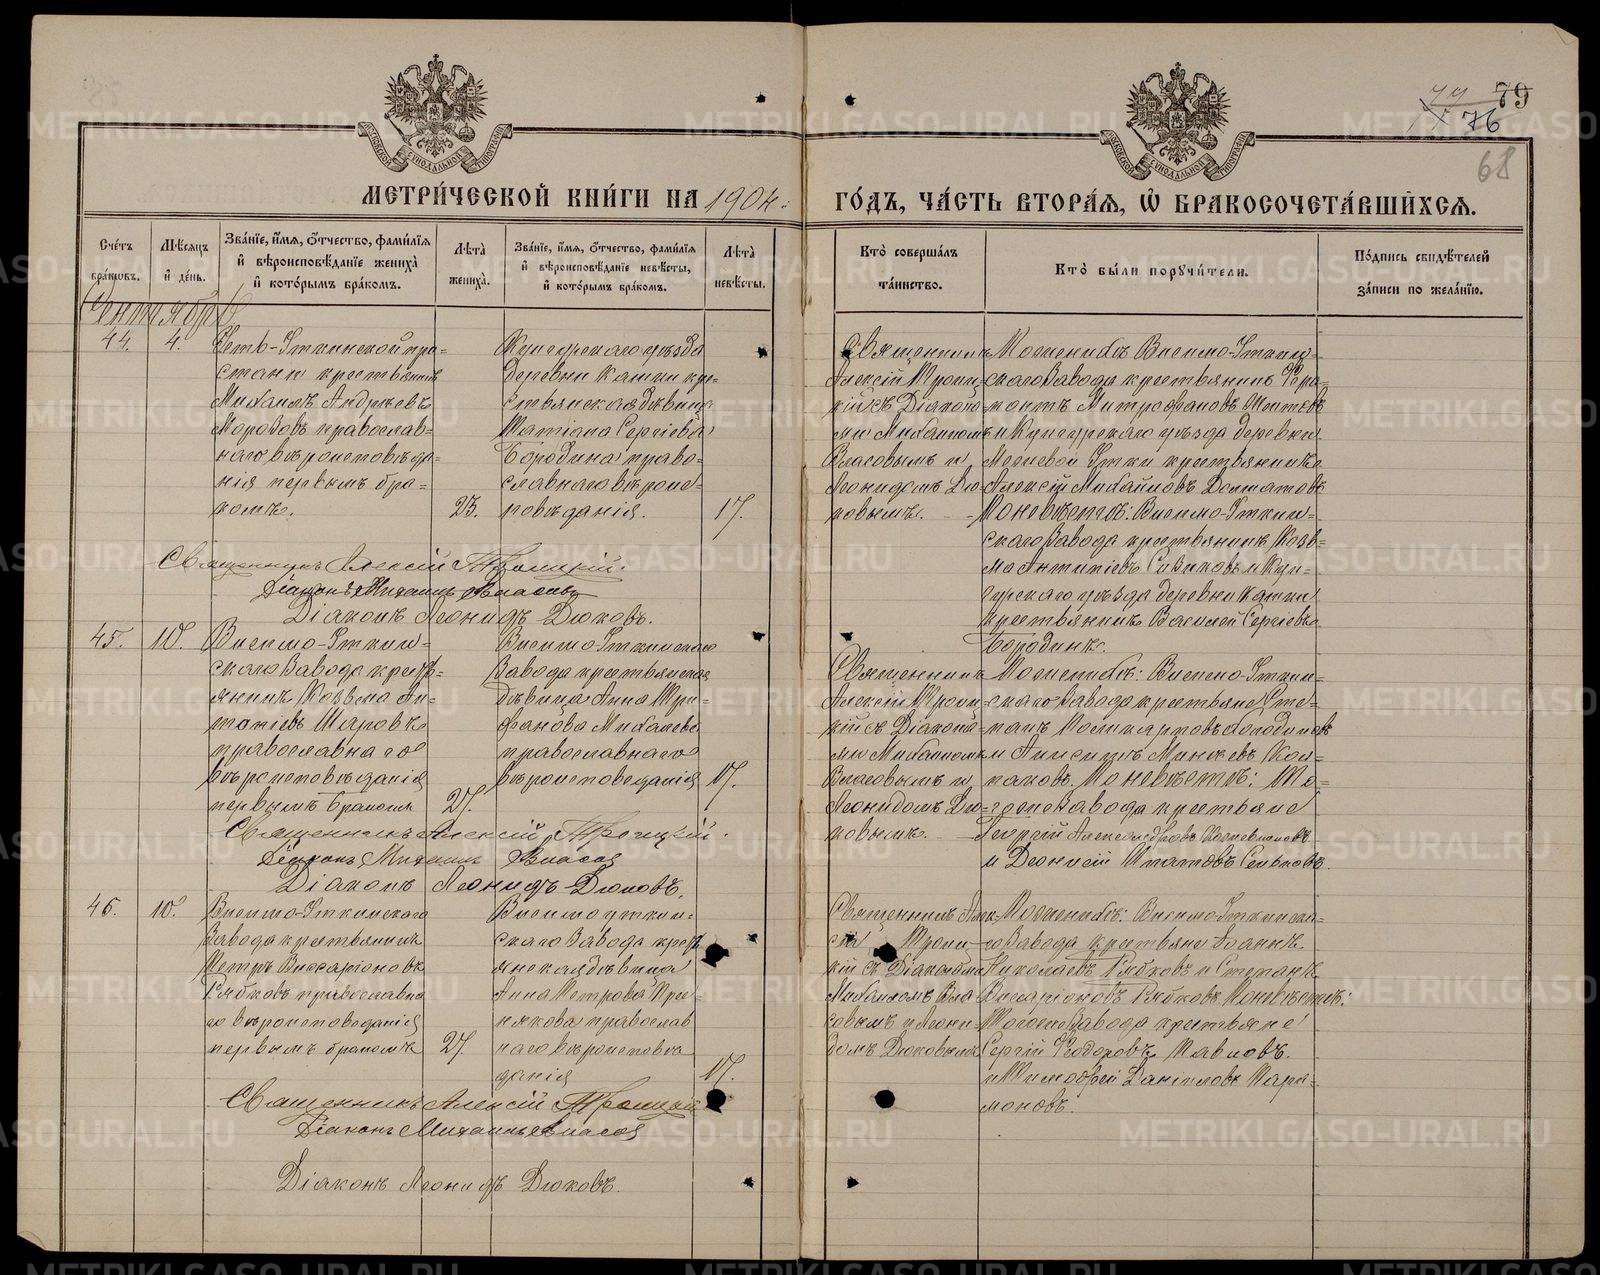 79
76
68
МОСКОВСКОЙ СУНОДАЛЬНОЙ ТИПОГРАФІИ
МОСКОВСКОЙ СУНОДАЛЬНОЙ ТИПОГРАФІИ
МЕТРИ́ЧЕСКОЙ КНИ́ГИ НА 1904
ГО́ДЪ, ЧА́СТЬ ВТОРА́Я, Ѡ БРАКОСОЧЕТА́ВШИХСЯ.
Сче́тъ бра́ковъ.
Мѣсяцъ и де́нь.
Зва́нїе, и́мя, о́тчество, фами́лїя и вѣроисповѣданїе жениха̀ и кото́рымъ бра́комъ.
Лѣта̀ жениха̀.
Зва́нїе, и́мя, о́тчество, фами́лїя и вѣроисповѣданїе невѣсты, и кото́рымъ бра́комъ.
Лѣта̀ невѣсты.
Кто̀ соверша́лъ та́инство.
Кто̀ бы́ли порꙋчи́тели.
По́дпись свидѣтелей за́писи по жела́нїю.
Сентябрь
44.
4.
Усть-Уткинской при-
стани крестьянинъ
Михаилъ Андреевъ
Морозовъ православ-
наго вѣроисповѣда-
нія первымъ бра-
комъ.
23.
Кунгурскаго уѣзда
деревни Кашки кре-
стьянская дѣвица
Татіана Сергіева
Бородина право-
славнаго вѣроис-
повѣданія.
17.
Священникъ
Алексій Троиц-
кій съ Діакона-
ми Михаиломъ
Власовымъ и
Леонидомъ Дю-
ковымъ.
По женихѣ Висимо-Уткин-
скаго Завода крестьянинъ
Митрофановъ
и Кунгурскаго уѣзда деревни
Утки крестьянинъ
Алексій Михайловъ Долматовъ
По невѣстѣ: Висимо-Уткин-
скаго Завода крестьянинъ Козь-
ма Антипіевъ и Кун-
гурскаго уѣзда деревни Кашки
крестьянинъ Василій Сергіевъ
Бородинъ.
Священникъ Алексій Троицкій.
Діаконъ Михаилъ Власовъ
Діаконъ Леонидъ Дюковъ.
45.
10.
Висимо-Уткин-
скаго Завода кресть-
янинъ Козьма Ан-
типіевъ
православнаго
вѣроисповѣданія
первымъ бракомъ
27.
Висимо Уткинскаго
Завода крестьянская
дѣвица Анна Три-
фанова Михалева
православнаго
вѣроисповеданія
17.
Священникъ
Алексій Троиц-
кій съ Діакона-
ми Михаиломъ
Власовымъ и
Леонидомъ Дю-
ковымъ.
По женихѣ: Висимо-Уткин-
скаго Завода крестьяне Сте-
панъ Поликарповъ Холодиловъ
и Анисимъ
По невѣстѣ: То-
гоже Завода крестьяне
Георгій Александровъ
и Деонисій
Священникъ Алексій Троицкій.
Діаконъ Михаилъ Власов
Діаконъ Леонидъ Дюковъ.
46.
10.
Висимо-Уткинскаго
Завода крестьянинъ
Петръ Висаріоновъ
Рябковъ православна-
го вѣроисповеданія
первымъ бракомъ
27.
Висимо уткин-
скаго Завода кресть-
янская дѣвица
Анна Петрова
православ
наго вѣроисповѣ
данія
17.
Священникъ Алек-
сій Троиц-
кій съ Діаконами
Михаиломъ Вла-
совымъ и Леони-
домъ Дюковымъ
По женихѣ: Висимо-Уткинска-
го Завода крестьяне Іоаннъ
Николаевъ Рябковъ и Степанъ
Висаріоновъ Рябковъ По невѣстѣ:
Тогоже Завода крестьяне
Сергій Ѳеодоровъ Павловъ.
и Тимофей Даніиловъ Пара-
моновъ.
Священникъ Алексій Троицкій
Діаконъ Михаилъ Власов
Діаконъ Леонидъ Дюковъ.
METRIKI.GASO-URAL.RU